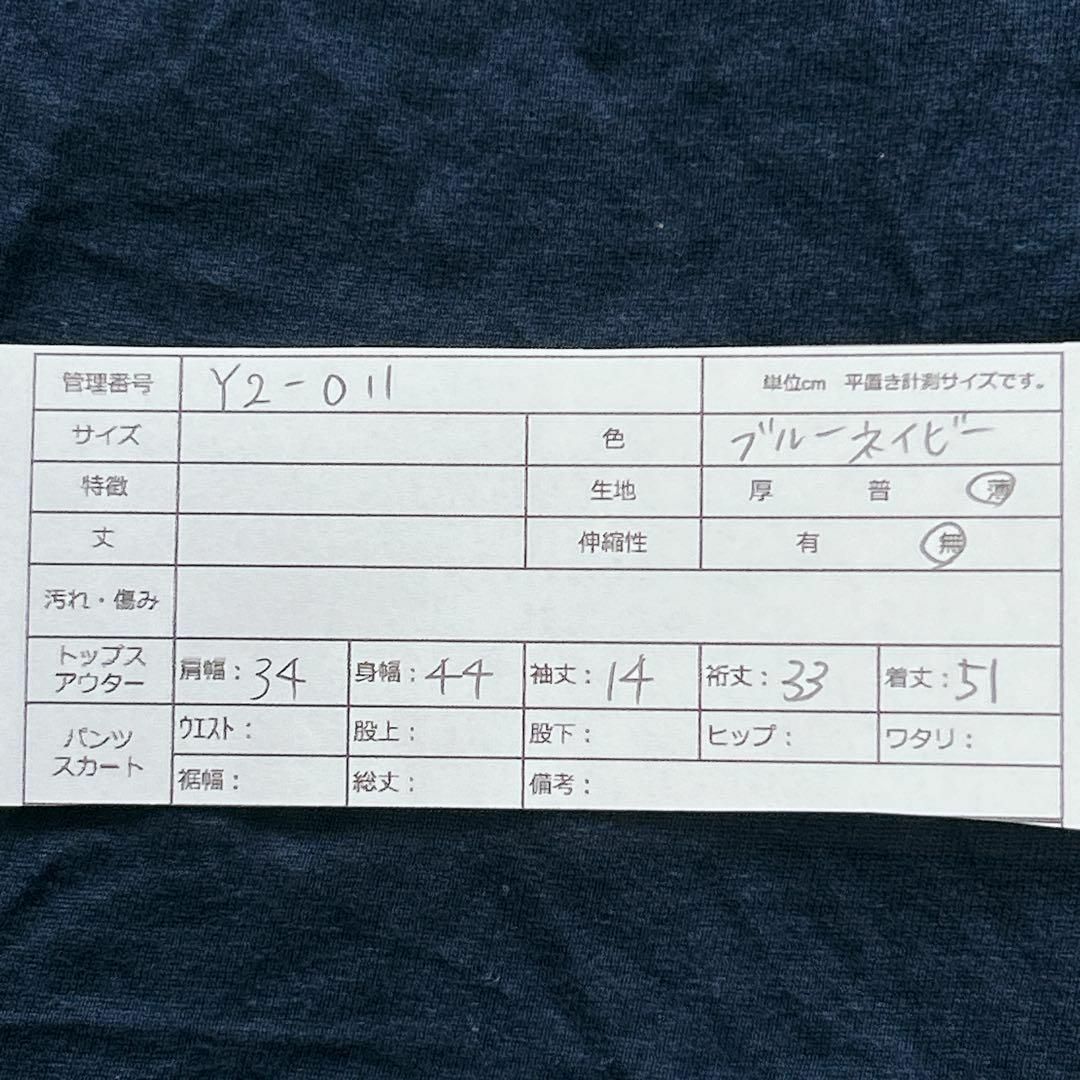 管理番号 Y2-011 単位cm 平置き計測サイズです。
サイズ 色 ブルーネイビー
特徴 生地 厚 普 薄
丈 伸縮性 有 無
汚れ・傷み
トップス
アウター 肩幅：34 身幅：44 袖丈：14 裄丈：33 着丈：51
パンツ
スカート ウエスト： 股上： 股下： ヒップ： ワタリ：
裾幅： 総丈： 備考：